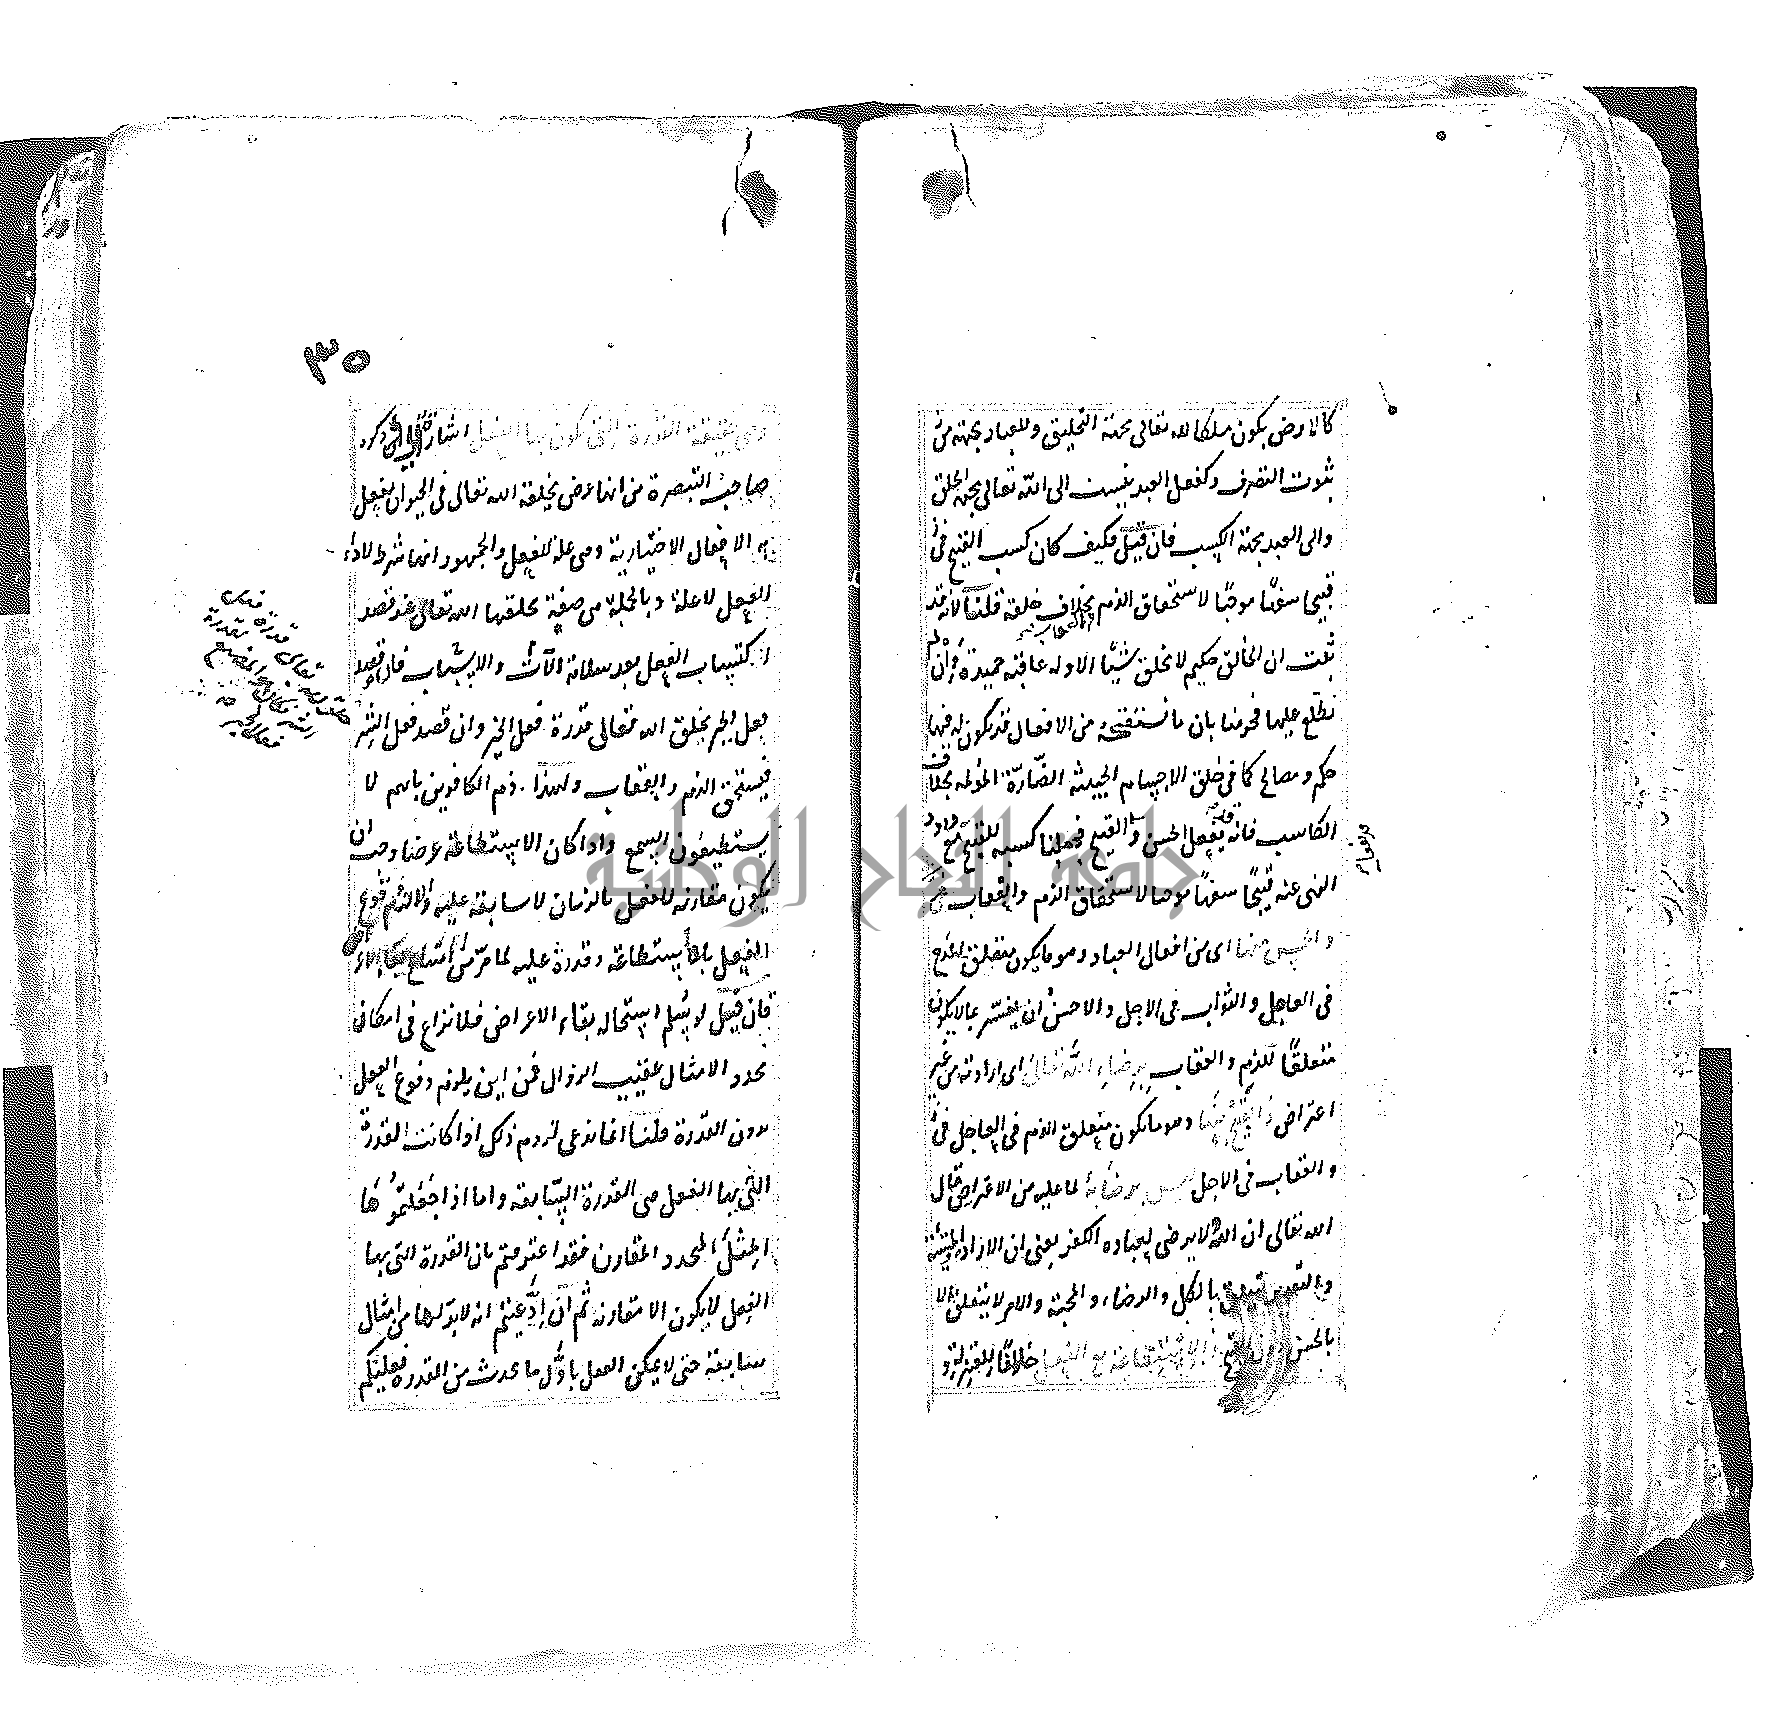 كالارض يكون ملكا لله تعالى بجهة التخليق وللعباد بجهة
ثبوت التصرف وكفعل العبد ينسب الى الله تعالى بجهة الخلق
والى العبد بجهة الكسب فان قيل فكيف كان كسب القبيح
قبيحا سفها موجبا لاستحقاق الذم بخلاف خلقه قلنا لانه قد
ثبت ان الخالق حكيم لا يخلق شيئا الا وله عاقبة حميدة وان لم
نطلع عليها فجزمنا بان ما نستقبحه من الافعال قد يكون له فيها
حكم ومصالح كما في خلق الاجسام الخبيثة الضارة المؤلمة بخلاف
الكاسب فانه قد يفعل الحسن والقبيح فجعلنا كسبه للقبيح مع ورود
النهى عنه قبيحا سفها موجبا لاستحقاق الذم والعقاب
والحسن منها اى من افعال العباد وهو ما يكون متعلق المدح
فى العاجل والثواب فى الاجل والاحسن ان يفسر بما لا يكون
متعلقا للذم والعقاب برضاء الله تعالى اى ارادته من غير
اعتراض والقبيح منها وهو ما يكون متعلق الذم فى العاجل
والعقاب فى الاجل ليس برضائه لما عليه من الاعتراض قال
الله تعالى ان الله لا يرضى لعباده الكفر يعنى ان الارادة والمشيئة
والتقدير يتعلق بالكل والرضاء والمحبة والامر لا يتعلق الا
بالحسن دون القبيح والاستطاعة مع الفعل خلافا للمعتزلة و
وانعام
٣٥
وهى حقيقة القدرة التى يكون بها الفعل اشارة الى ما ذكره
صاحب التبصرة من انها عرض يخلقه الله تعالى فى الحيوان يفعل
به الافعال الاختيارية وهى علة للفعل والجمهور انها شرط لاداء
الفعل لا علة وبالجملة هى صفة يخلقها الله تعالى عند قصد
اكتساب الفعل بعد سلامة الآلات والاسباب فان قصد
فعل الخير يخلق الله تعالى قدرة فعل الخير وان قصد فعل الشر
فيستحق الذم والعقاب ولهذا ذم الكافرين بانهم لا
يستطيعون السمع واذا كان الاستطاعة عرضا وجب ان
يكون مقارنة للفعل بالزمان لا سابقة عليه والا لزم وقوع
الفعل بلا استطاعة وقدرة عليه لما مر من امتناع بقاء
فان قيل لو سلم استحالة بقاء الاعراض فلا نزاع فى امكان
تجدد الامثال عقيب الزوال فمن اين يلزم وقوع الفعل
بدون القدرة قلنا انما ندعى لزوم ذلك اذا كانت القدرة
التى بها الفعل هى القدرة السابقة واما اذا جعلتموها
المثل المتجدد المقارن فقد اعترفتم بان القدرة التى بها
الفعل لا يكون الا مقارنة ثم ان ادعيتم انه لا بد لها من امثال
سابقة حتى لا يمكن الفعل باول ما يحدث من القدرة فعليكم
جامعة النجاح الوطنية